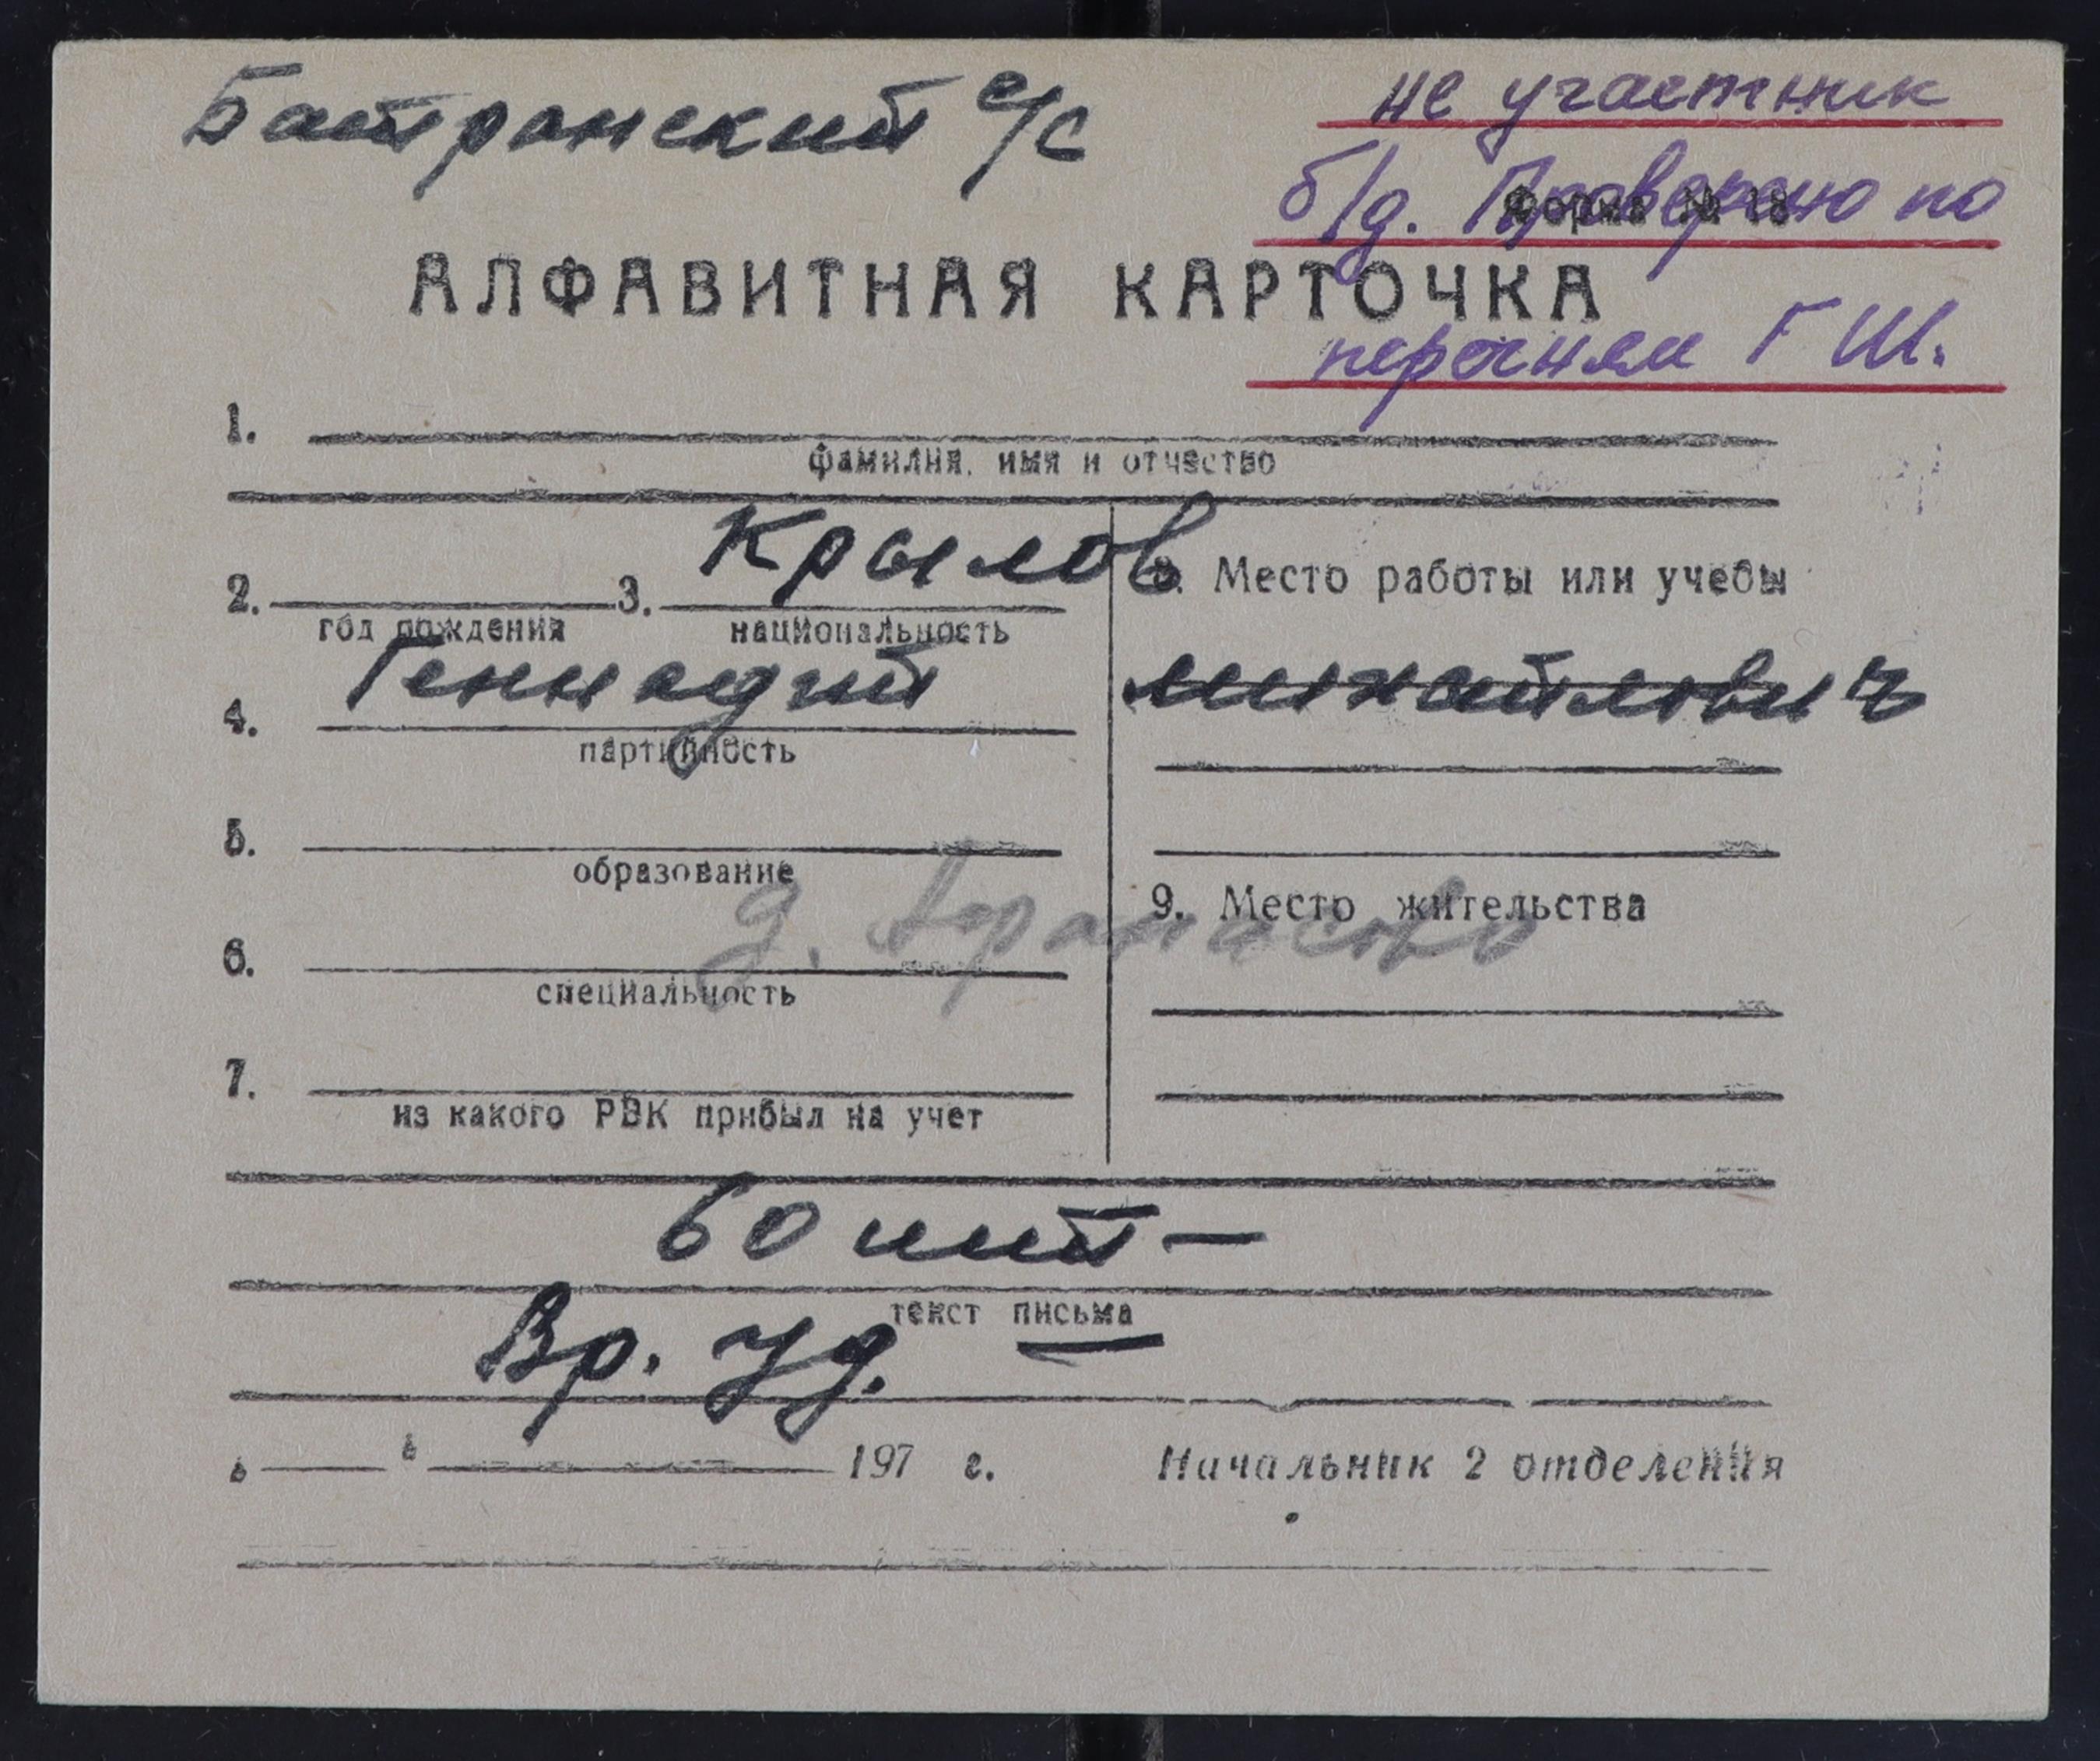 Батранский с/с
не участник
б/д. Проверено по
Форма № 18
АЛФАВИТНАЯ КАРТОЧКА
перечням ГШ.
1.
фамилия, имя и отчество
Крылов
2. 3. 8. Место работы или учебы
год рождения национальность
Геннадий Михайлович
4.
партийность
5.
образование
9. Место жительства
д.
6.
специальность
7.
из какого РВК прибыл на учет
60 лет –
текст письма
Вр. уд. —
197 г. Начальник 2 отделения